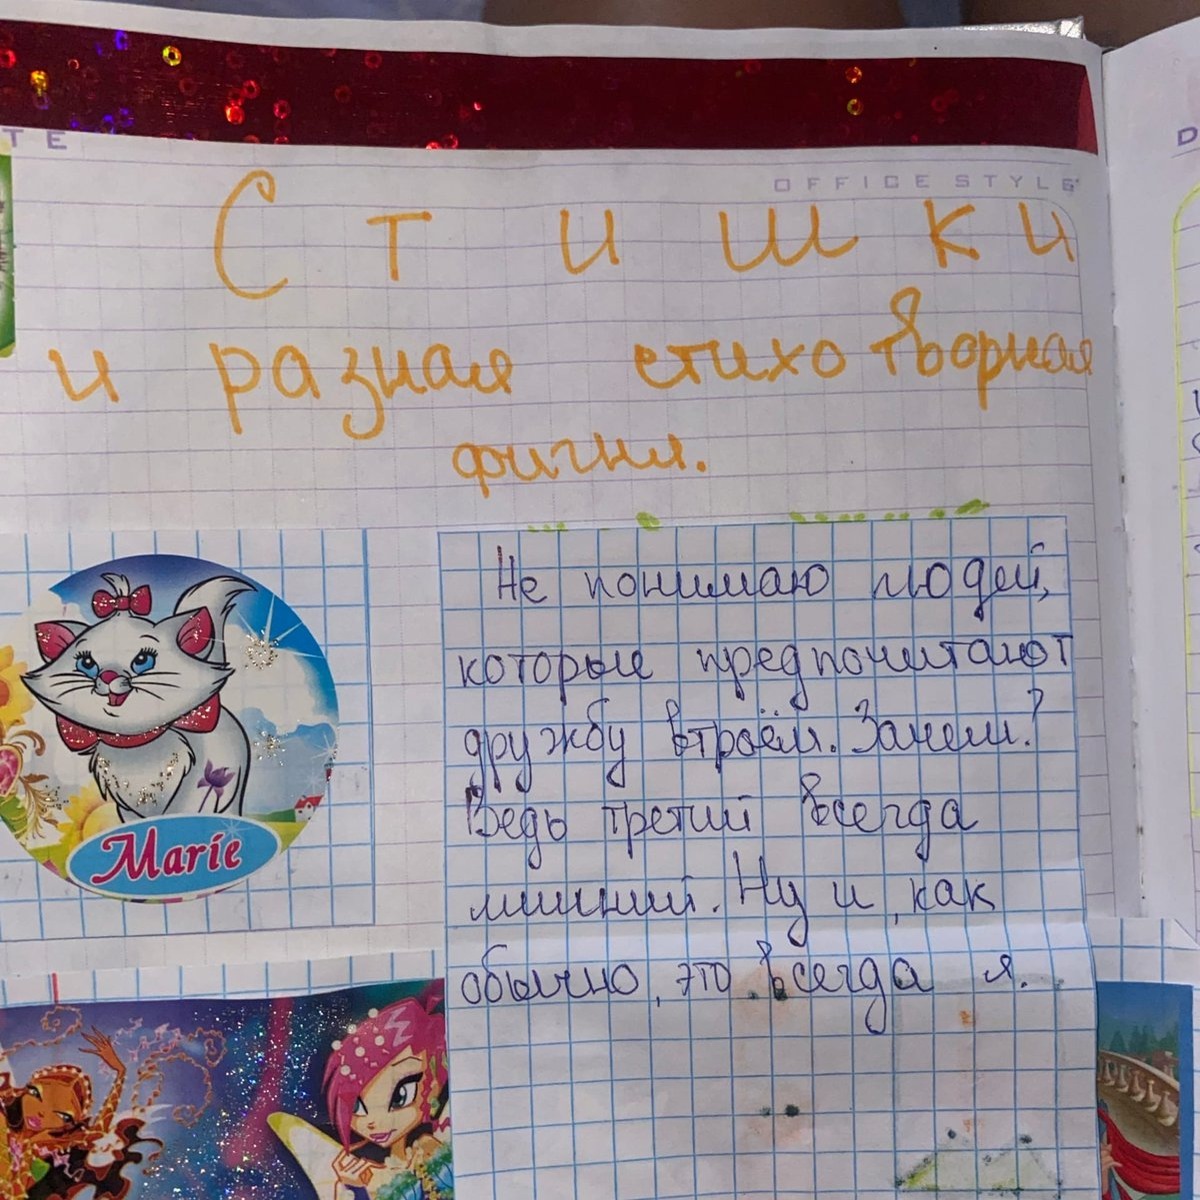 TE
OFFICE STYLE
D
Стишки
и разная стихотворная
фигня.
Не понимаю людей,
которые предпочитают
дружбу втроём. Зачем?
Ведь третий всегда
лишний. Ну и, как
обычно, это всегда я.
Marie